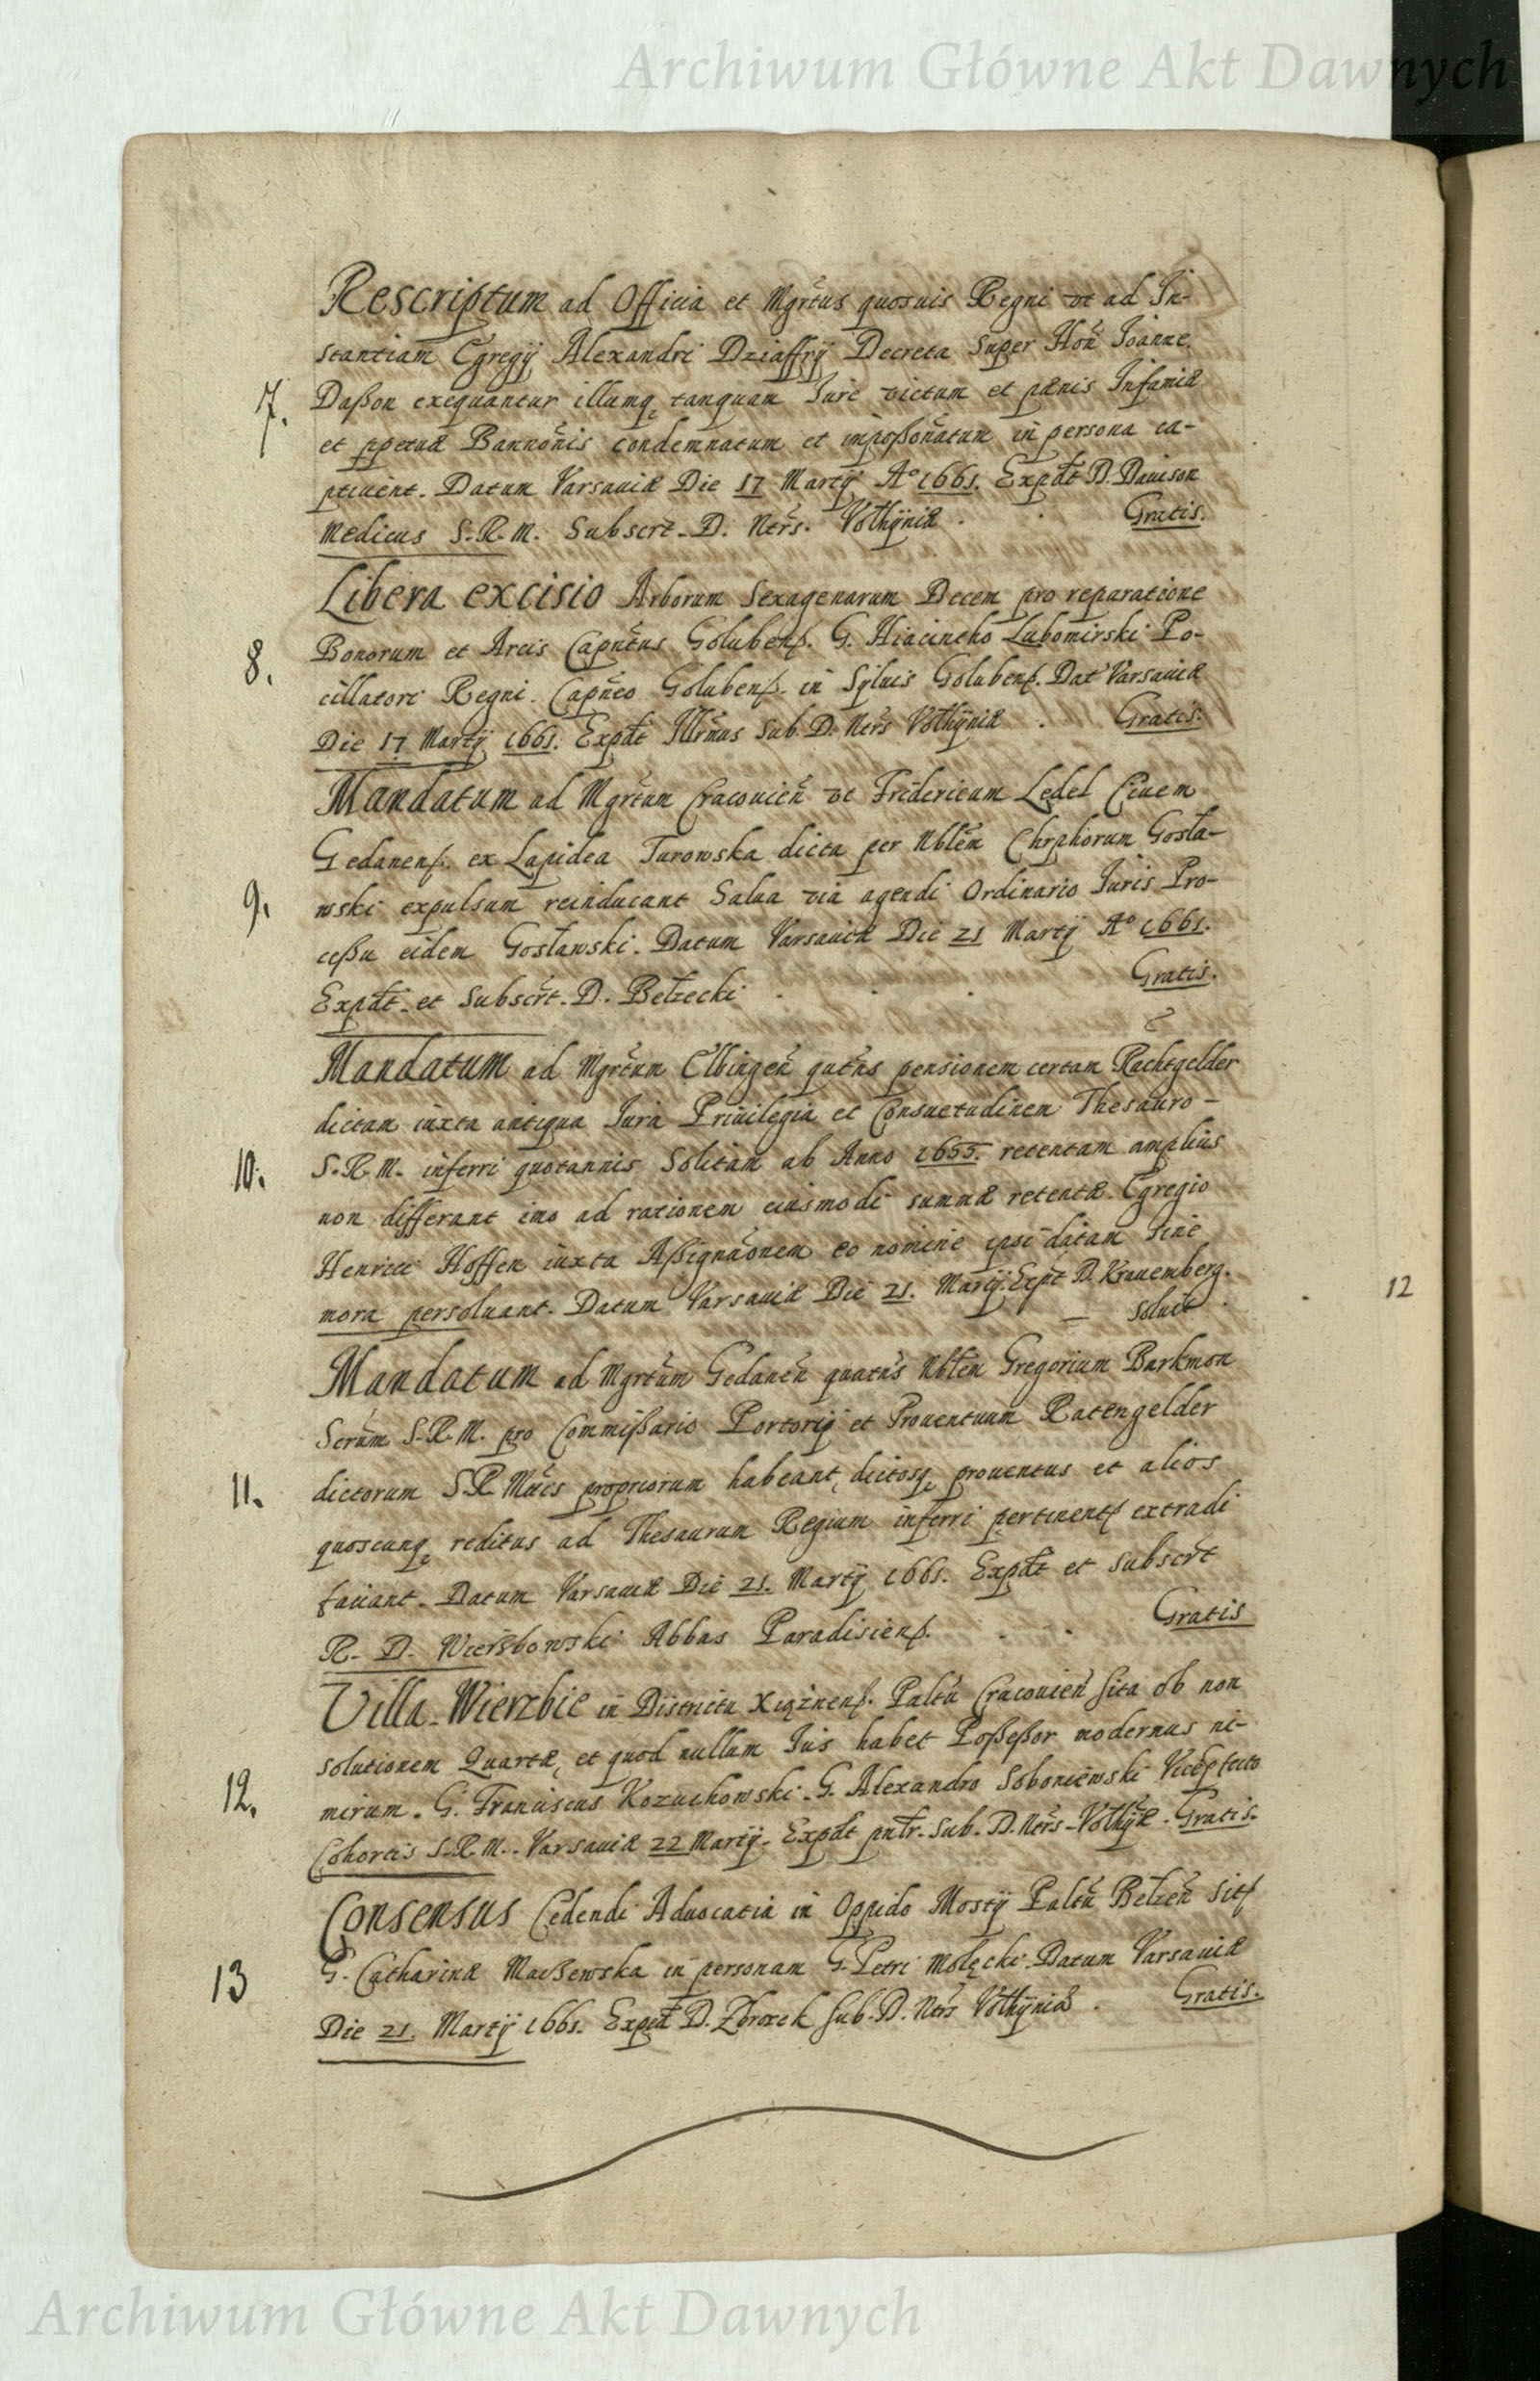 Archiwum Główne Akt Dawnych
Rescriptum ad Officia et Mgrtus quosuis Regni vt ad In-
stantiam Egregij Alexandri Dziaffrij Decreta super Hon Joanne
7. Daßon exequantur illumq tanquam Jure victum et pænis Infamiæ
et ppetuæ Bannonis condemnatum et impoßonatum in persona ca-
ptiuent. Datum Varsauiæ Die 17 Martij Aº 1661. Expdt D. Dauison
Medicus S.R.M. Subscrt. D. Ners. Volhÿniæ. Gratis.
Libera excisio Arborum Sexagenarum Decem pro reparatione
8. Bonorum et Arcis Capntus Golubens. G. Hiacintho Lubomirski Po-
cillatori Regni. Capneo Golubens. in Syluis Golubens. Dat Varsauiæ
Die 17 Martij 1661. Expdt Illrmus Sub. D. Ners Volhÿniæ. Gratis.
Mandatum ad Mgrtum Cracouien vt Fridericum Ledel Ciuem
Gedanens. ex Lapidea Turowska dicta per Nblem Chrphorum Gosła-
9. wski expulsum reinducant Salua via agendi Ordinario Juris Pro-
ceßu eidem Gosławski. Datum Varsauiæ Die 21 Martij Aº 1661.
Expdt. et Subscrt. D. Bełzecki. Gratis.
Mandatum ad Mgrtum Elbingen qutns pensionem certam Rachtgelder
dictam iuxta antiqua Jura Priuilegia et Consuetudinem Thesauro-
10. S.R.M. inferri quotannis Solitam ab Anno 1655. retentam amplius
non differant imo ad rationem eiusmodi summæ retentæ. Egregio
Henrici Hoffen iuxta Aßignaonem eo nomine ipsi datam sine
mora persoluant. Datum Varsauiæ Die 21. Martij. Expt D. Krauemberg.
12
Solut
Mandatum ad Mgrtum Gedanen quatns Nblem Gregorium Barkmon
Scrum S.R.M. pro Commißario Portorij et Prouentuum Ratengelder
11. dictorum S.R. Mtis propriorum habeant, dictosq prouentus et alios
quoscunq reditus ad Thesaurum Regium inferri pertinent extradi
faciant. Datum Varsauiæ Die 21. Martij 1661. Expdt et subscrt
R. D. Wierßbowski Abbas Paradisiens. Gratis
Villa Wierzbie in Districtu Xiążnens. Paltu Cracouien sita ob non
solutionem Quartæ, et quod nullum Jus habet Poßeßor modernus ni-
12. mirum. G. Franciscus Kozuchowski. G. Alexandro Soboniewski
Cohortis S.R.M. Varsauiæ 22 Martij. Expdt pntr. Sub. D. Ners. Volhÿæ. Gratis.
Consensus Cedendi Aduocatia in Oppido Mostÿ Paltu Bełzen Sit
13 G. Catharinæ Macßewska in personam G. Petri Molęcki. Datum Varsauiæ
Die 21. Martij 1661. Expdt D. Zbroxek Sub. D. Ners Volhÿniæ. Gratis.
Archiwum Główne Akt Dawnych